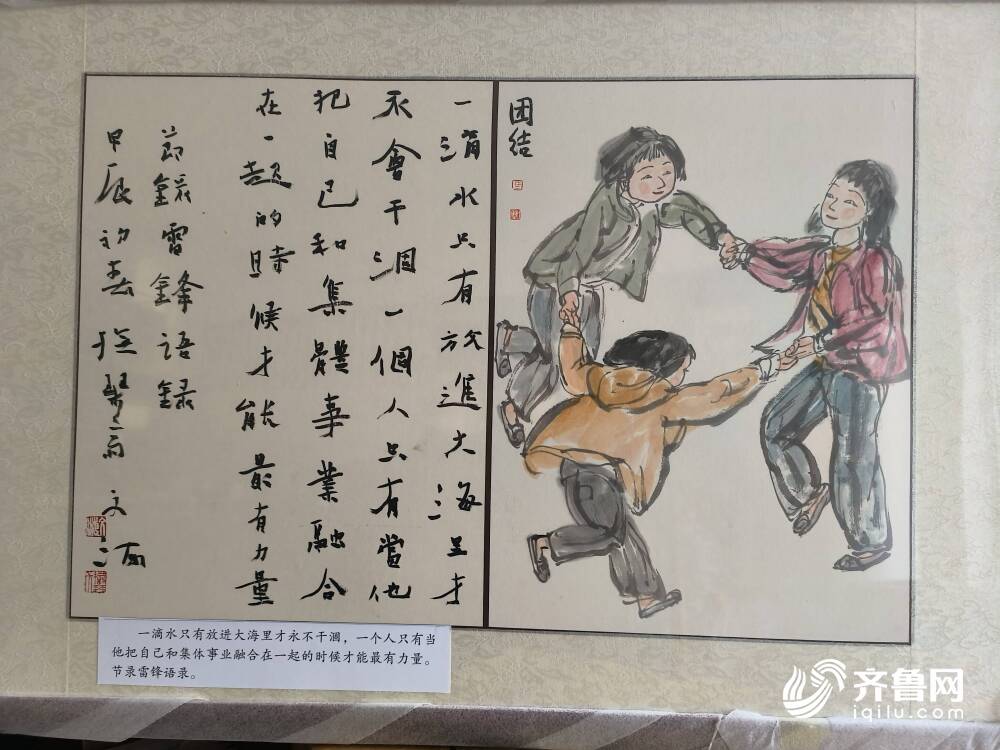 一滴水只有放進大海里才
不會干涸一個人只有當他
把自己和集體事業融合
在一起的時候才能最有力量
節錄雷鋒語錄
甲辰初春
团结
一滴水只有放进大海里才永不干涸，一个人只有当
他把自己和集体事业融合在一起的时候才能最有力量。
节录雷锋语录。
齐鲁网
iqilu.com